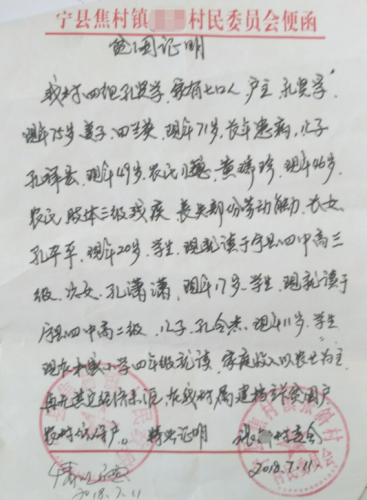 宁县焦村镇 村民委员会便函
贫困证明
我村四组孔奖学, 家有七口人, 户主, 孔奖学,
现年75岁, 妻子, 田兰英, 现年71岁, 长年患病, 儿子
孔祥云, 现年49岁, 农民, 儿媳, 黄琦珍, 现年46岁,
农民, 肢体三级残疾, 丧失部份劳动能力, 长女,
孔平平, 现年20岁, 学生, 现就读于宁县四中高三
级, 次女, 孔潇潇, 现年17岁, 学生, 现就读于
宁县四中高二级, 儿子, 孔令杰, 现年11岁, 学生
现在 小学四年级就读, 家庭收入以农业为主,
再无其它经济来源, 在我村属建档 户
农村低保户。 特此证明
村委会
2018.7.11.
2018.7.11